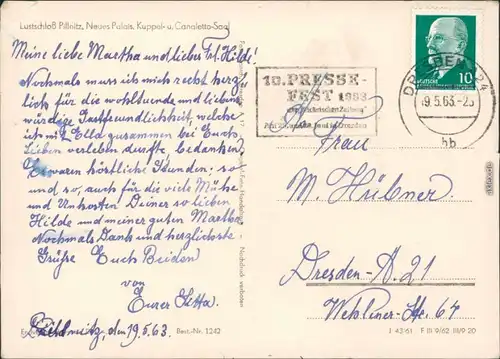 Lustschloß Pillnitz, Neues Palais, Kuppel- u. Canaletto-Saal
Meine liebe Martha und liebes Frl. Hilde!
Nochmals muss ich mich recht herz-
lich für die wohltuende und liebens
würdige Gastfreundlichkeit, welche
ich mit Ella zusammen bei Euch
Lieben verleben durfte, bedanken.
Es waren köstliche Stunden; so
und so, auch für die viele Mühe
und Unkosten Dir so lieben
Hilde und meiner guten Martha.
Nochmals Dank und herzlichste
Grüße Euch Beiden
von
Eurer
den 19.5.63.
Best.-Nr. 1242
Nachdruck verboten
10. PRESSE-
FEST 1963
DRESDEN
19.5.63.-2
bb
DEUTSCHE
10
Frau
M. Hübner
Dresden-A. 21
Wehlener-Str. 64
J 43/61 F III 9/62 III/9 20